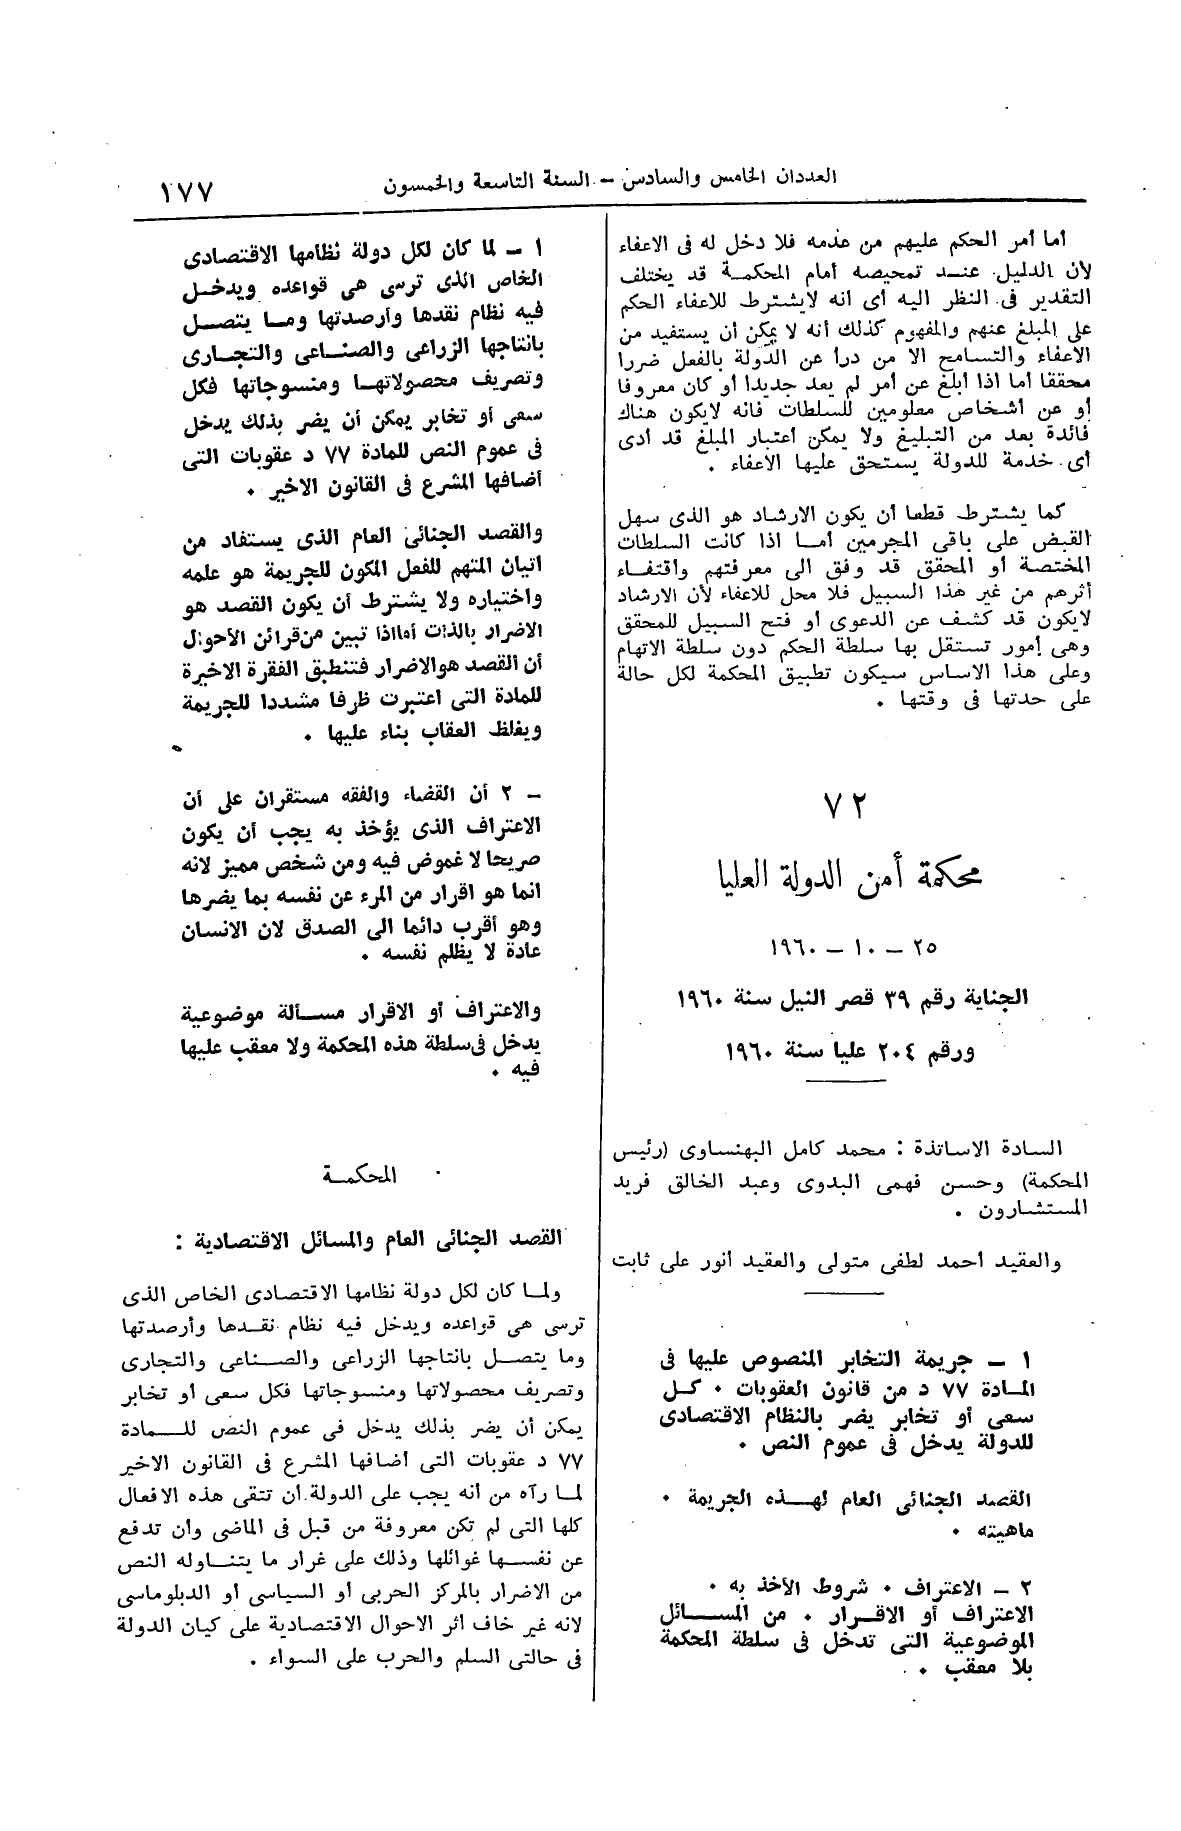 العددان الخامس والسادس – السنة التاسعة والخمسون
١٧٧
أما أمر الحكم عليهم من عدمه فلا دخل له فى الاعفاء
لأن الدليل عنــد تمحيصه أمام المحكمة قد يختلف
التقدير فى النظر اليه أى انه لايشترط للاعفاء الحكم
على المبلغ عنهم والمفهوم كذلك أنه لا يمكن أن يستفيد من
الاعفاء والتسامح الا من درأ عن الدولة بالفعل ضررا
محققا أما اذا أبلغ عن أمر لم يعد جديدا أو كان معروفا
أو عن أشخاص معلومين للسلطات فانه لايكون هناك
فائدة بعد من التبليغ ولا يمكن اعتبار المبلغ قد أدى
أى خدمة للدولة يستحق عليها الاعفاء .
كما يشترط قطعا أن يكون الارشاد هو الذى سهل
القبض على باقى المجرمين أمــا اذا كانت السلطات
المختصة أو المحقق قد وفق الى معرفتهم واقتفــاء
أثرهم من غير هذا السبيل فلا محل للاعفاء لأن الارشاد
لايكون قد كشف عن الدعوى أو فتح السبيل للمحقق
وهى أمور تستقل بها سلطة الحكم دون سلطة الاتهام
وعلى هذا الاساس سيكون تطبيق المحكمة لكل حالة
على حدتها فى وقتها .
٧٢
محكمة أمن الدولة العليا
٢٥ – ١٠ – ١٩٦٠
الجناية رقم ٣٩ قصر النيل سنة ١٩٦٠
ورقم ٢٠٤ عليا سنة ١٩٦٠
السادة الاساتذة : محمد كامل البهنساوى (رئيس
المحكمة) وحسن فهمى البدوى وعبد الخالق فريد
المستشارون .
والعقيد احمد لطفى متولى والعقيد أنور على ثابت
١ – جريمة التخابر المنصوص عليها فى
المــادة ٧٧ د من قانون العقوبات . كــل
سعى أو تخابر يضر بالنظام الاقتصادى
للدولة يدخل فى عموم النص .
القصد الجنائى العام لهــذه الجريمة .
ماهيته .
٢ – الاعتراف . شروط الأخذ به .
الاعتراف أو الاقــرار . من المســـائل
الموضوعية التى تدخل فى سلطة المحكمة
بلا معقب .
١ – لما كان لكل دولة نظامها الاقتصادى
الخاص الذى ترسى هى قواعده ويدخــل
فيه نظام نقدها وأرصدتها ومــا يتصــل
بانتاجها الزراعى والصنـاعى والتجـارى
وتصريف محصولاتهـا ومنسوجاتها فكل
سعى أو تخابر يمكن أن يضر بذلك يدخل
فى عموم النص للمادة ٧٧ د عقوبات التى
أضافها المشرع فى القانون الاخير .
والقصد الجنائى العام الذى يستفاد من
اتيان المتهم للفعل المكون للجريمة هو علمه
واختياره ولا يشترط أن يكون القصد هو
الاضرار بالذات أمااذا تبين من قرائن الأحوال
أن القصد هو الاضرار فتنطبق الفقرة الاخيرة
للمادة التى اعتبرت ظرفا مشددا للجريمة
ويغلظ العقاب بناء عليها .
– ٢ أن القضاء والفقه مستقران على أن
الاعتراف الذى يؤخذ به يجب أن يكون
صريحا لا غموض فيه ومن شخص مميز لانه
انما هو اقرار من المرء عن نفسه بما يضرها
وهو أقرب دائما الى الصدق لان الانسان
عادة لا يظلم نفسه .
والاعتراف أو الاقرار مســألة موضوعية
يدخل فى سلطة هذه المحكمة ولا معقب عليها
فيه .
المحكمــة
القصد الجنائى العام والمسائل الاقتصادية :
ولمــا كان لكل دولة نظامها الاقتصادى الخاص الذى
ترسى هى قواعده ويدخل فيه نظام نقـدها وأرصدتها
وما يتصــل بانتاجها الزراعى والصــناعى والتجارى
وتصريف محصولاتها ومنسوجاتها فكل سعى أو تخابر
يمكن أن يضر بذلك يدخل فى عموم النص للـــمادة
٧٧ د عقوبات التى أضافها المشرع فى القانون الاخير
لمــا رآه من أنه يجب على الدولة أن تتقى هذه الافعال
كلها التى لم تكن معروفة من قبل فى الماضى وأن تدفع
عن نفســها غوائلها وذلك على غرار ما يتنــاوله النص
من الاضرار بالمركز الحربى أو السياسى أو الدبلوماسى
لانه غير خاف أثر الاحوال الاقتصادية على كيان الدولة
فى حالتى السلم والحرب على السواء .